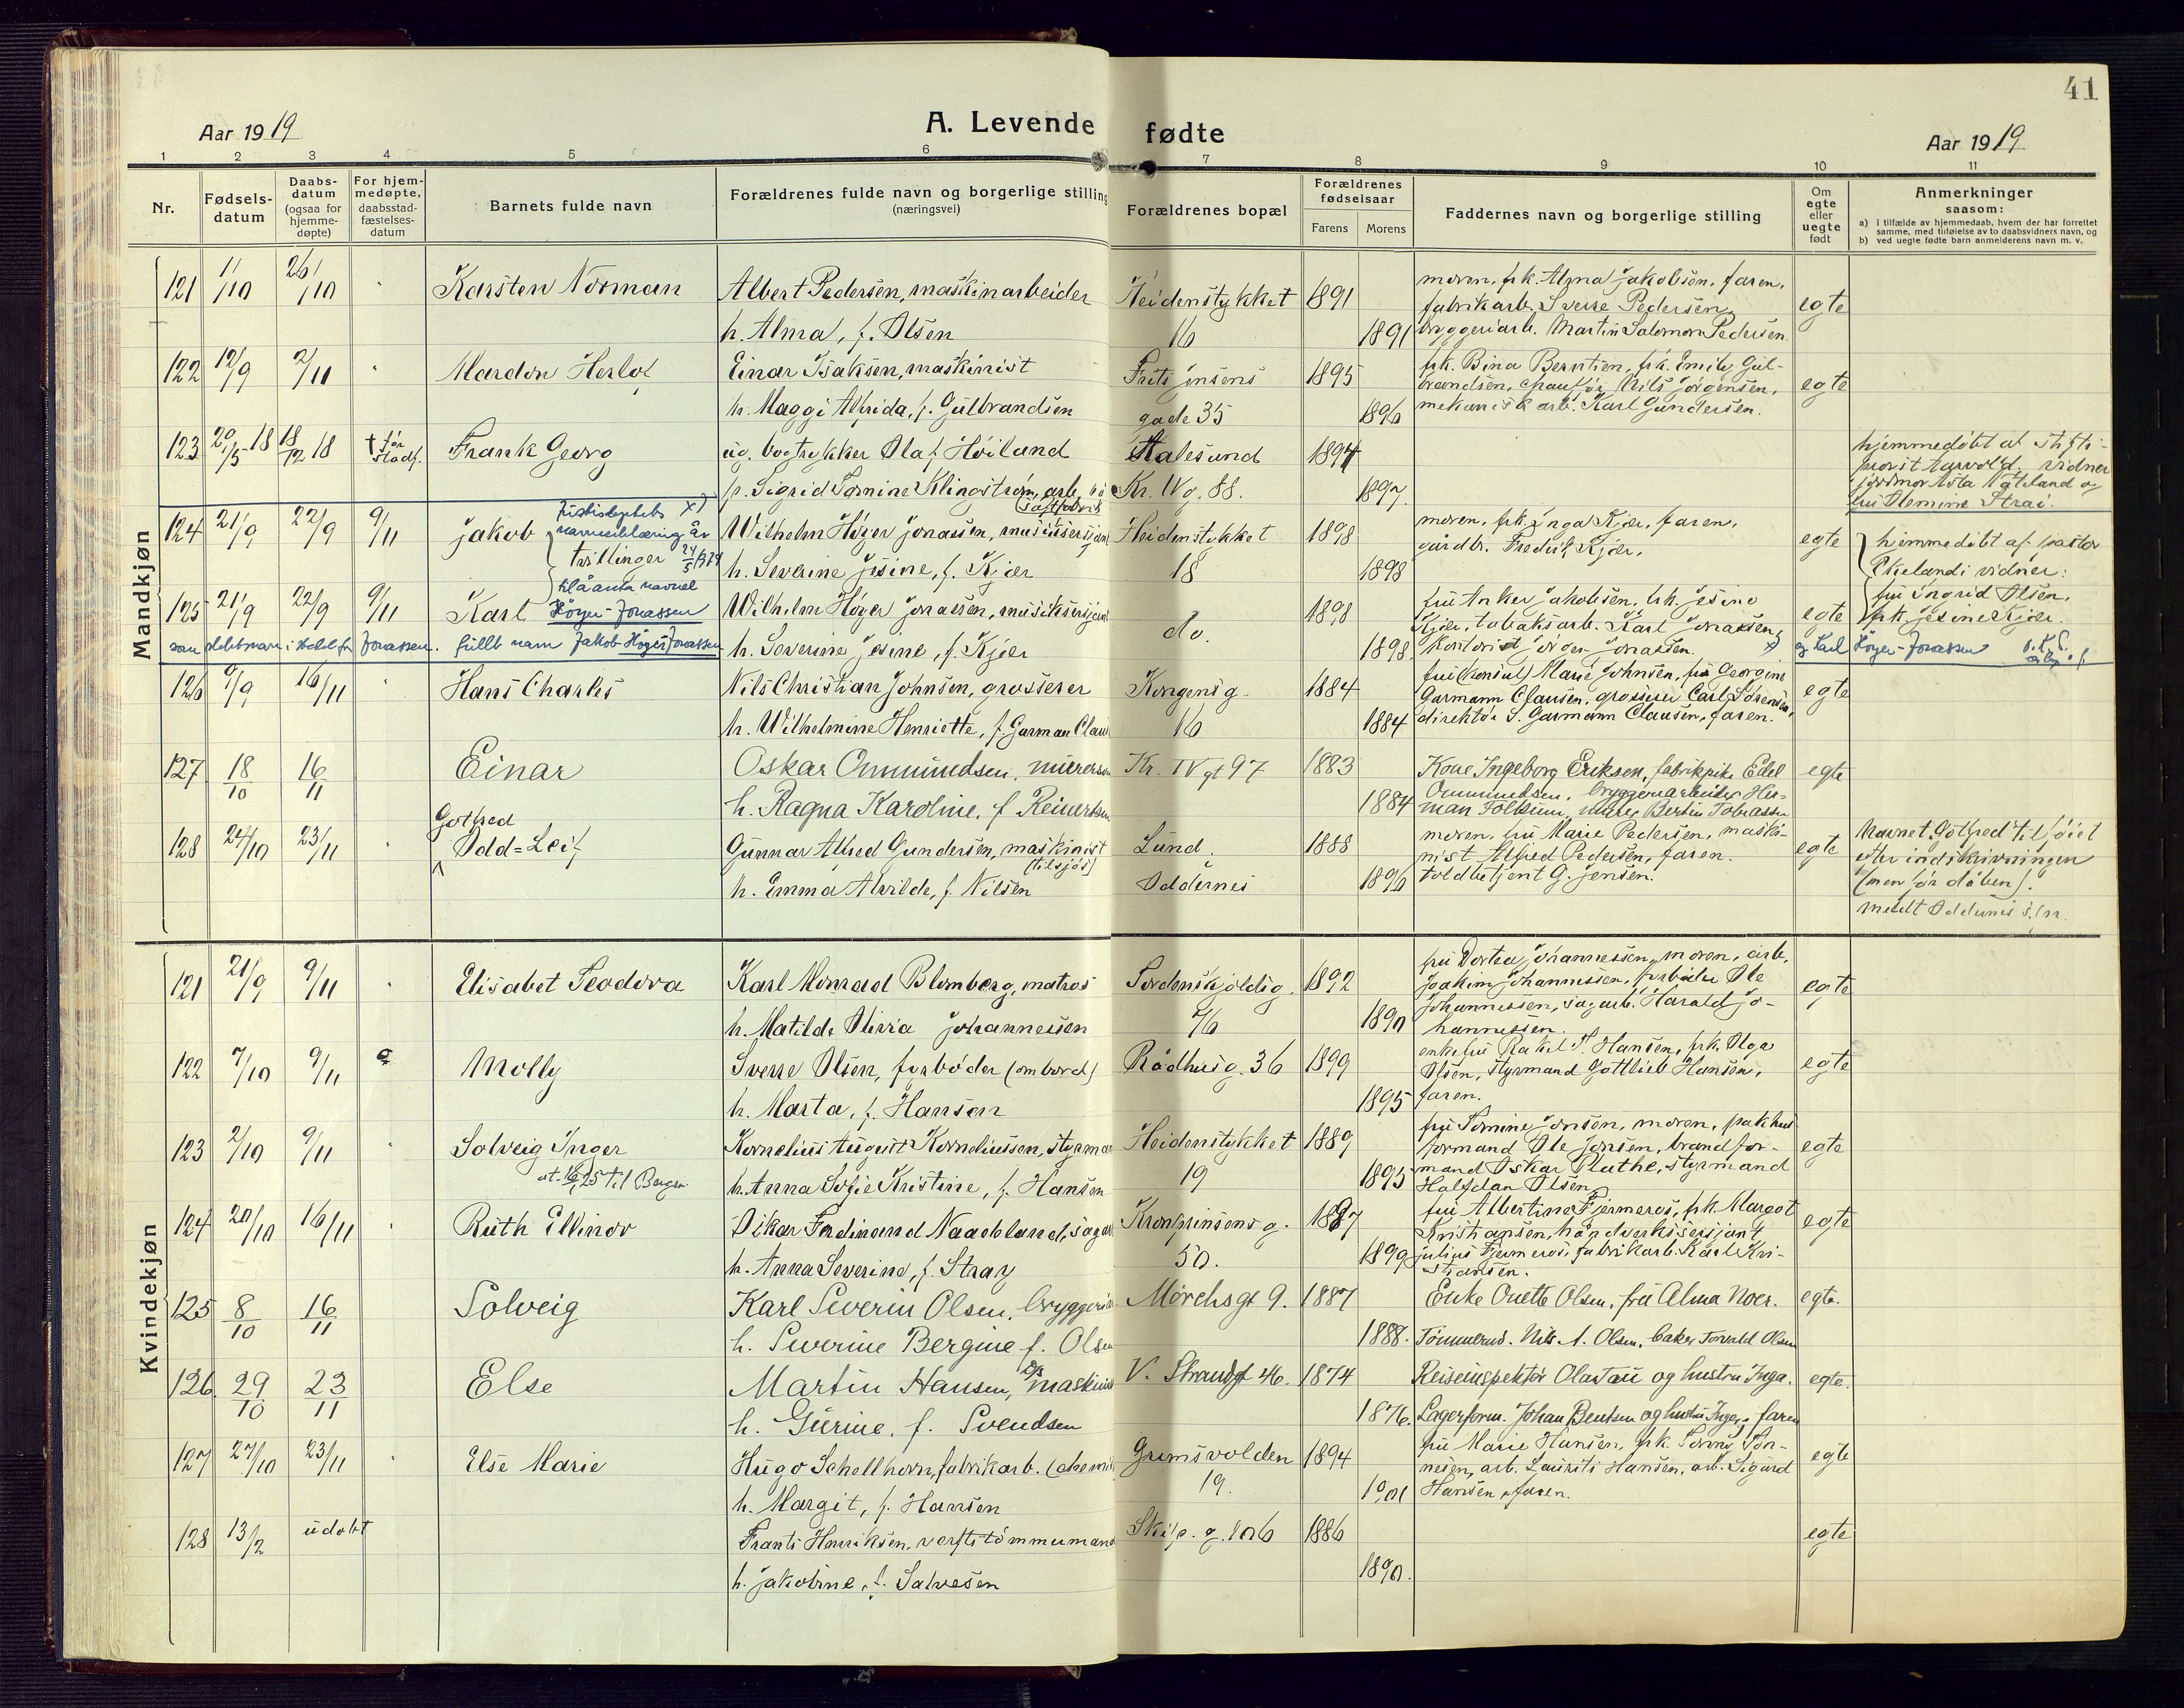 41
Aar 1919
A. Levende fødte
Aar 1919
1 2 3 4 5 6 7 8 9 10 11
Nr.
Fødsels-
datum
Daabs-
datum
(ogsaa for
hjemme-
døpte)
For hjem-
medøpte,
daabsstad-
fæstelses-
datum
Barnets fulde navn
Forældrenes fulde navn og borgerlige stilling
(næringsvei)
Forældrenes bopæl
Forældrenes
fødselsaar
Farens Morens
Faddernes navn og borgerlige stilling
Om
egte
eller
uegte
født
Anmerkninger
saasom:
a) i tilfælde av hjemmedaab, hvem der har forrettet
samme, med tilføielse av to daabsvidners navn, og
b) ved uegte fødte barn anmelderens navn m. v.
Mandkjøn
121 1/10 26/10 Karsten Norman Albert Pedersen, maskinarbeider Heidenstykket 1891 moren, frk. Alma Jakobsen, faren, egte
fabrikarb. Sverre Pedersen,
h. Alma, f. Olsen 16 1891 bryggeriarb. Martin Salomon Pedersen.
122 12/9 2/11 Mardon Herlof Einar Isaksen, maskinist Frits Jensens 1895 frk. Bina Berntsen, frk. Emily Gul- egte
brandsen, chauffør Nils Jörgensen,
h. Maggi Alfrida, f. Gulbrandsen gade 35 1896 mekanisk arb. Karl Gundersen.
123 20/5 18 18/12 18 † før stadf. Frank Georg ug. bogtrykker Olaf Høiland Aalesund 1894 hjemmedøbt af stifts-
provst Aarvold. vidner
p. Sigrid Tomine Klingström, arb. på Kr. IV g. 88. 1897. jordmor Asta Nateland og
saftfabrik fru Stemine Strai.
124 21/9 22/9 9/11 Jakob Wilhelm Høyer Jonassen, musikksersjant Heidenstykket 1898 moren, frk. Inga Kjær, faren, egte hjemmedöbt af pastor
Justisdeptets x)
navneerklæring av
tvillinger 24/5 1924
til å anta navnet
Høyer-Jonassen
gårdbr. Fredrik Kjær.
h. Severine Jesine, f. Kjær 18 1898 Ekeland; vidner:
125 21/9 22/9 9/11 Karl Wilhelm Høyer Jonassen, musikksersjant do. 1898 fru Anker Jakobsen, frk. Jesine egte fru Ingrid Olsen,
Kjær, tobaksarb. Karl Jonassen, frk. Jesine Kjær.
som slektsnavn i stedet for Jonassen. fullt navn Jakob Høyer-Jonassen x) og Karl Høyer-Jonassen
h. Severine Jesine, f. Kjær 1898 kontorist Jörgen Jonassen.
126 9/9 16/11 Hans Charles Nils Christian Johnsen, grosserer Kongensg. 1884 fru (konsul) Marie Johnsen, fru Georgine egte
Garmann Clausen, grosserer Carl Sørensen,
h. Wilhelmine Henriette, f. Garman Clau 16 1884 direktör S. Garmann Clausen, faren.
127 18/10 16/11 Einar Oskar Ommundsen, murer Kr. IV gt 97 1883 Kone Ingeborg Eriksen, fabrikpike Edel egte
Ommundsen, bryggeriarbeider Her-
h. Ragna Karoline, f Reinertsen 1884 man Folksum, murer Bertin Tobiassen
128 24/10 23/11 Gotfred Odd=Leif Gunnar Alfred Gundersen, maskinist Lund. 1888 moren, fru Marie Pedersen, maski- egte Navnet "Gotfred" tilføiet
(tilsjös) nist Alfred Pedersen, faren. efter indskrivningen
h. Emma Alvilde, f. Nilsen Oddernes 1896 toldbetjent G. Jensen. (men før dåben).
meldt Oddernes s.
Kvindekjøn
121 21/9 9/11 Elisabet Teodora Karl Monrad Blomberg, matros Tordenskjoldsg. 1892 fru Dortea Johannessen, moren, arb. egte
Joakim Johannessen, fyrbøder Ole
h. Matilde Olivia Johannessen 76 1890 Johannessen, sagarb. Harald Jo-
hannessen.
122 7/10 9/11 Molly Sverre Olsen, fyrbøder (ombord) Rådhusg. 36 1899 enkefru Rakel T. Hansen, frk. Olga egte
Olsen, styrmand Gottlieb Hansen,
h. Marta, f. Hansen 1895 faren.
123 2/10 9/11 Solveig Inger Kornelius August Korneliussen, styrma Heidenstykket 1889 fru Tomine Jonsen, moren, pakhus egte
at. 16/1 25 til Bergen
formand Ole Jonsen, brandfor-
h. Anna Sofie Kristine, f. Hansen 19 1893 mand Oskar Pluthe, styrmand
Halfdan Olsen
124 20/10 16/11 Ruth Ellinor Oskar Ferdinand Naadeland, sagar Kronprinsensg. 1897 fru Albertine Fjermeros, frk. Margot egte
Kristiansen, håndverkssersjant
h. Anna Severine, f. Stray 50. 1899 Julius Fjermeros, fabrikarb. Karl Kri-
stiansen.
125 8/10 16/11 Solveig Karl Severin Olsen, bryggeria Mørchsgt 9. 1887 Enke Onette Olsen, fru Alma Noer. egte.
h. Severine Bergine f. Olsen 1888. Tømmermd. Nils A. Olsen, baker Torvald Olsen
126 29/10 23/11 Else Martin Hansen, Ds maskinist V. Strandgt 46. 1874 Reiseinspektør Olastau og hustru Inga. egte.
h. Gurine, f. Svendsen 1876. Lagerform. Johan Bentsen og hustru Inger. faren
127 27/10 23/11 Else Marie Hugo Schellhorn, fabrikarb. (chemi Grimsvolden 1894 fru Marie Hansen, frk. Tonny Tön- egte
nesen, arb. Laurits Hansen, arb. Sigurd
h. Margit, f. Hansen 19. 1901 Hansen, faren.
128 13/2 udøbt Frants Henriksen, verftstömmermand Skip. g. 106 1886 egte
h. Jakobine, f. Salvesen 1890.